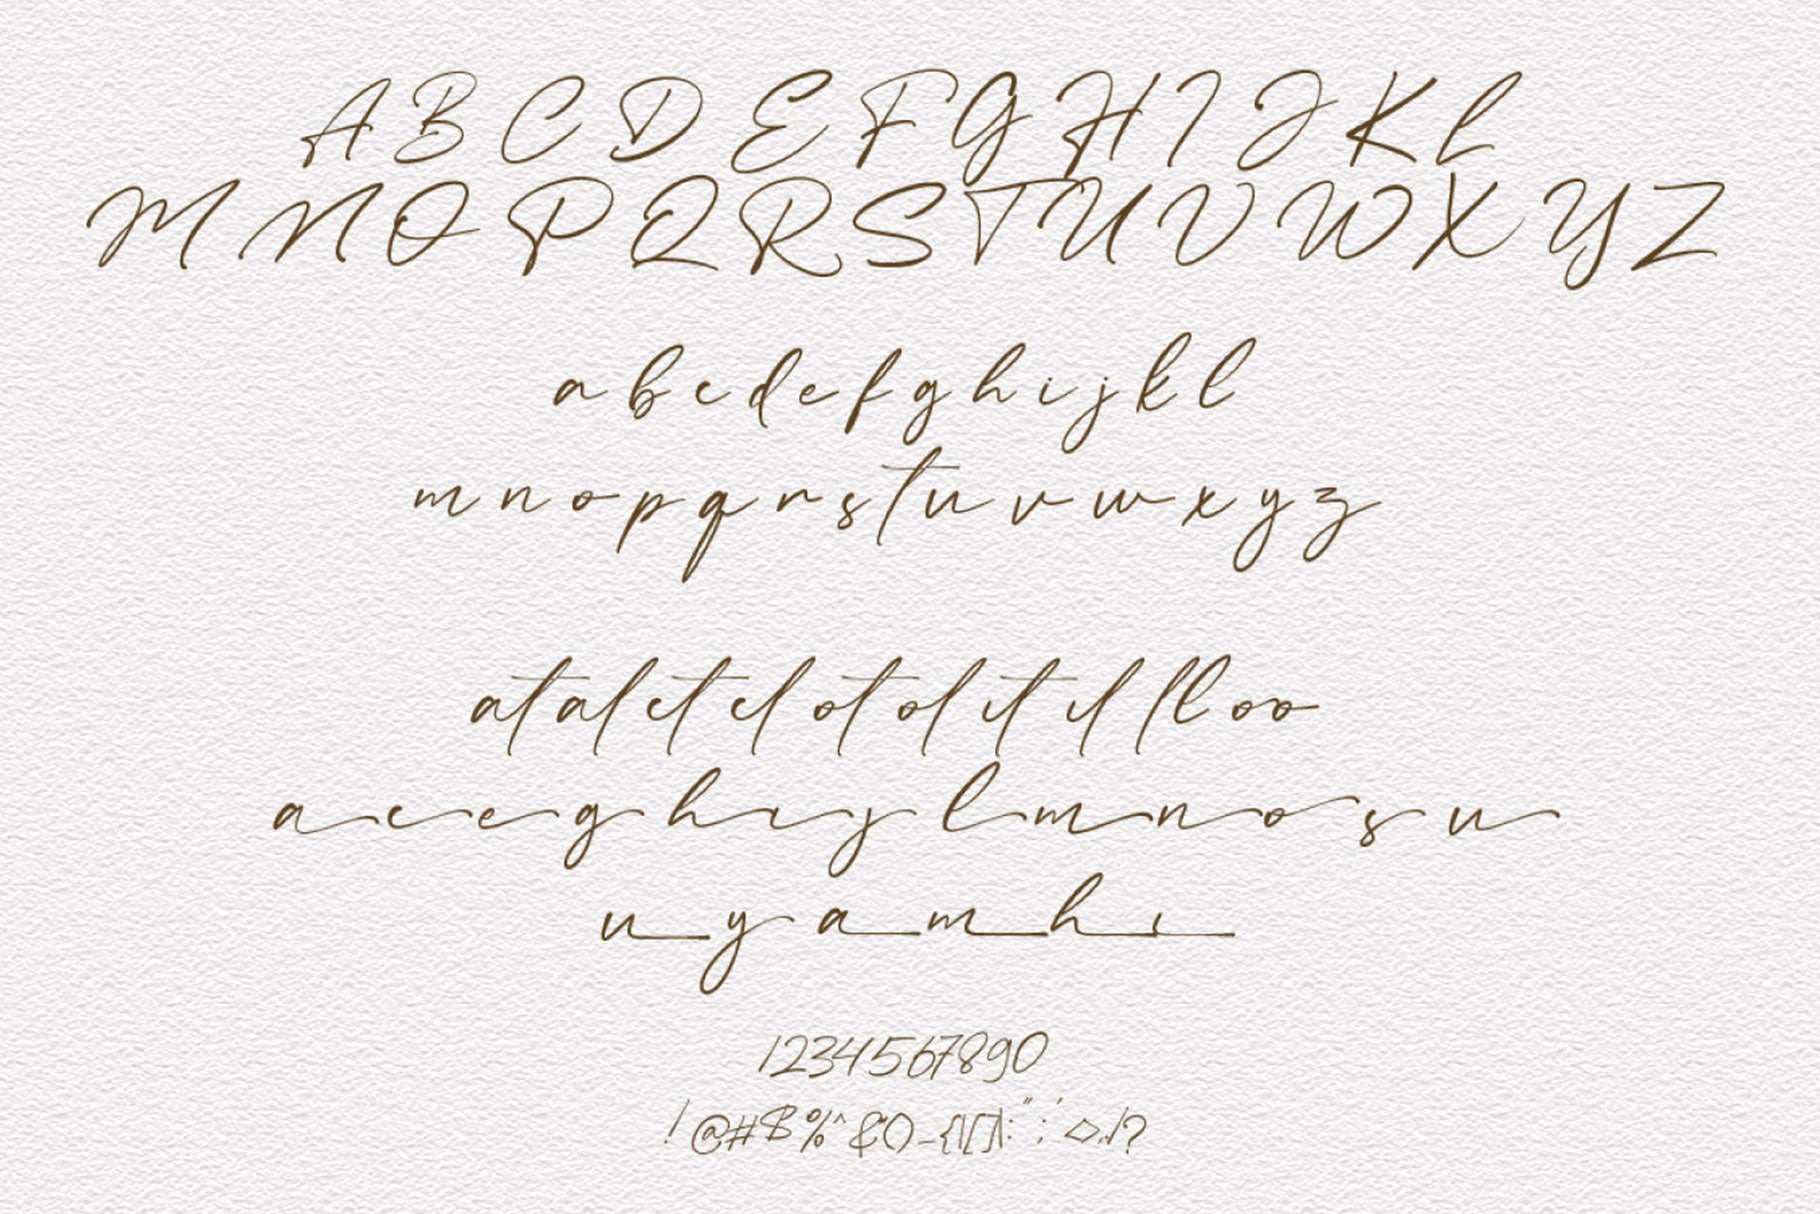 A B C D E F G H I J K L
M N O P Q R S T U V W X Y Z
a b c d e f g h i j k l
m n o p q r s t u v w x y z
at al et el ot ol it il ll oo
a c e g h i j l m n o s u
u y a m h i
1234567890
!@#$%^&()-{\[]}:";'<>,./?